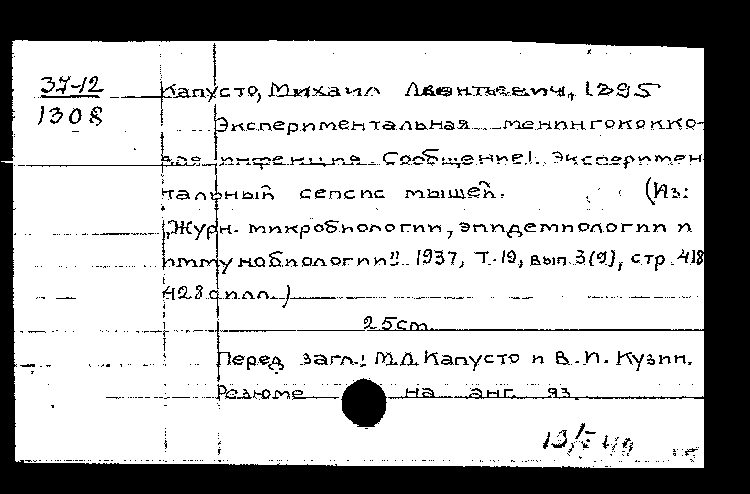 37-12
1308
Капусто, Михаил Леонтьевич, 1895
Экспериментальная менингококко-
вая инфекция. Сообщение I. Эксперимен-
тальный сепсис мышей. (Из:
"Журн. микробиологии, эпидемиологии и
иммунобиологии". 1937, Т. 19, вып. 3(9), стр. 418
428 с илл.)
25 cm.
Перед загл.: М.Л. Капусто и В.И. Кузин.
Резюме на анг. яз.
13/I 49